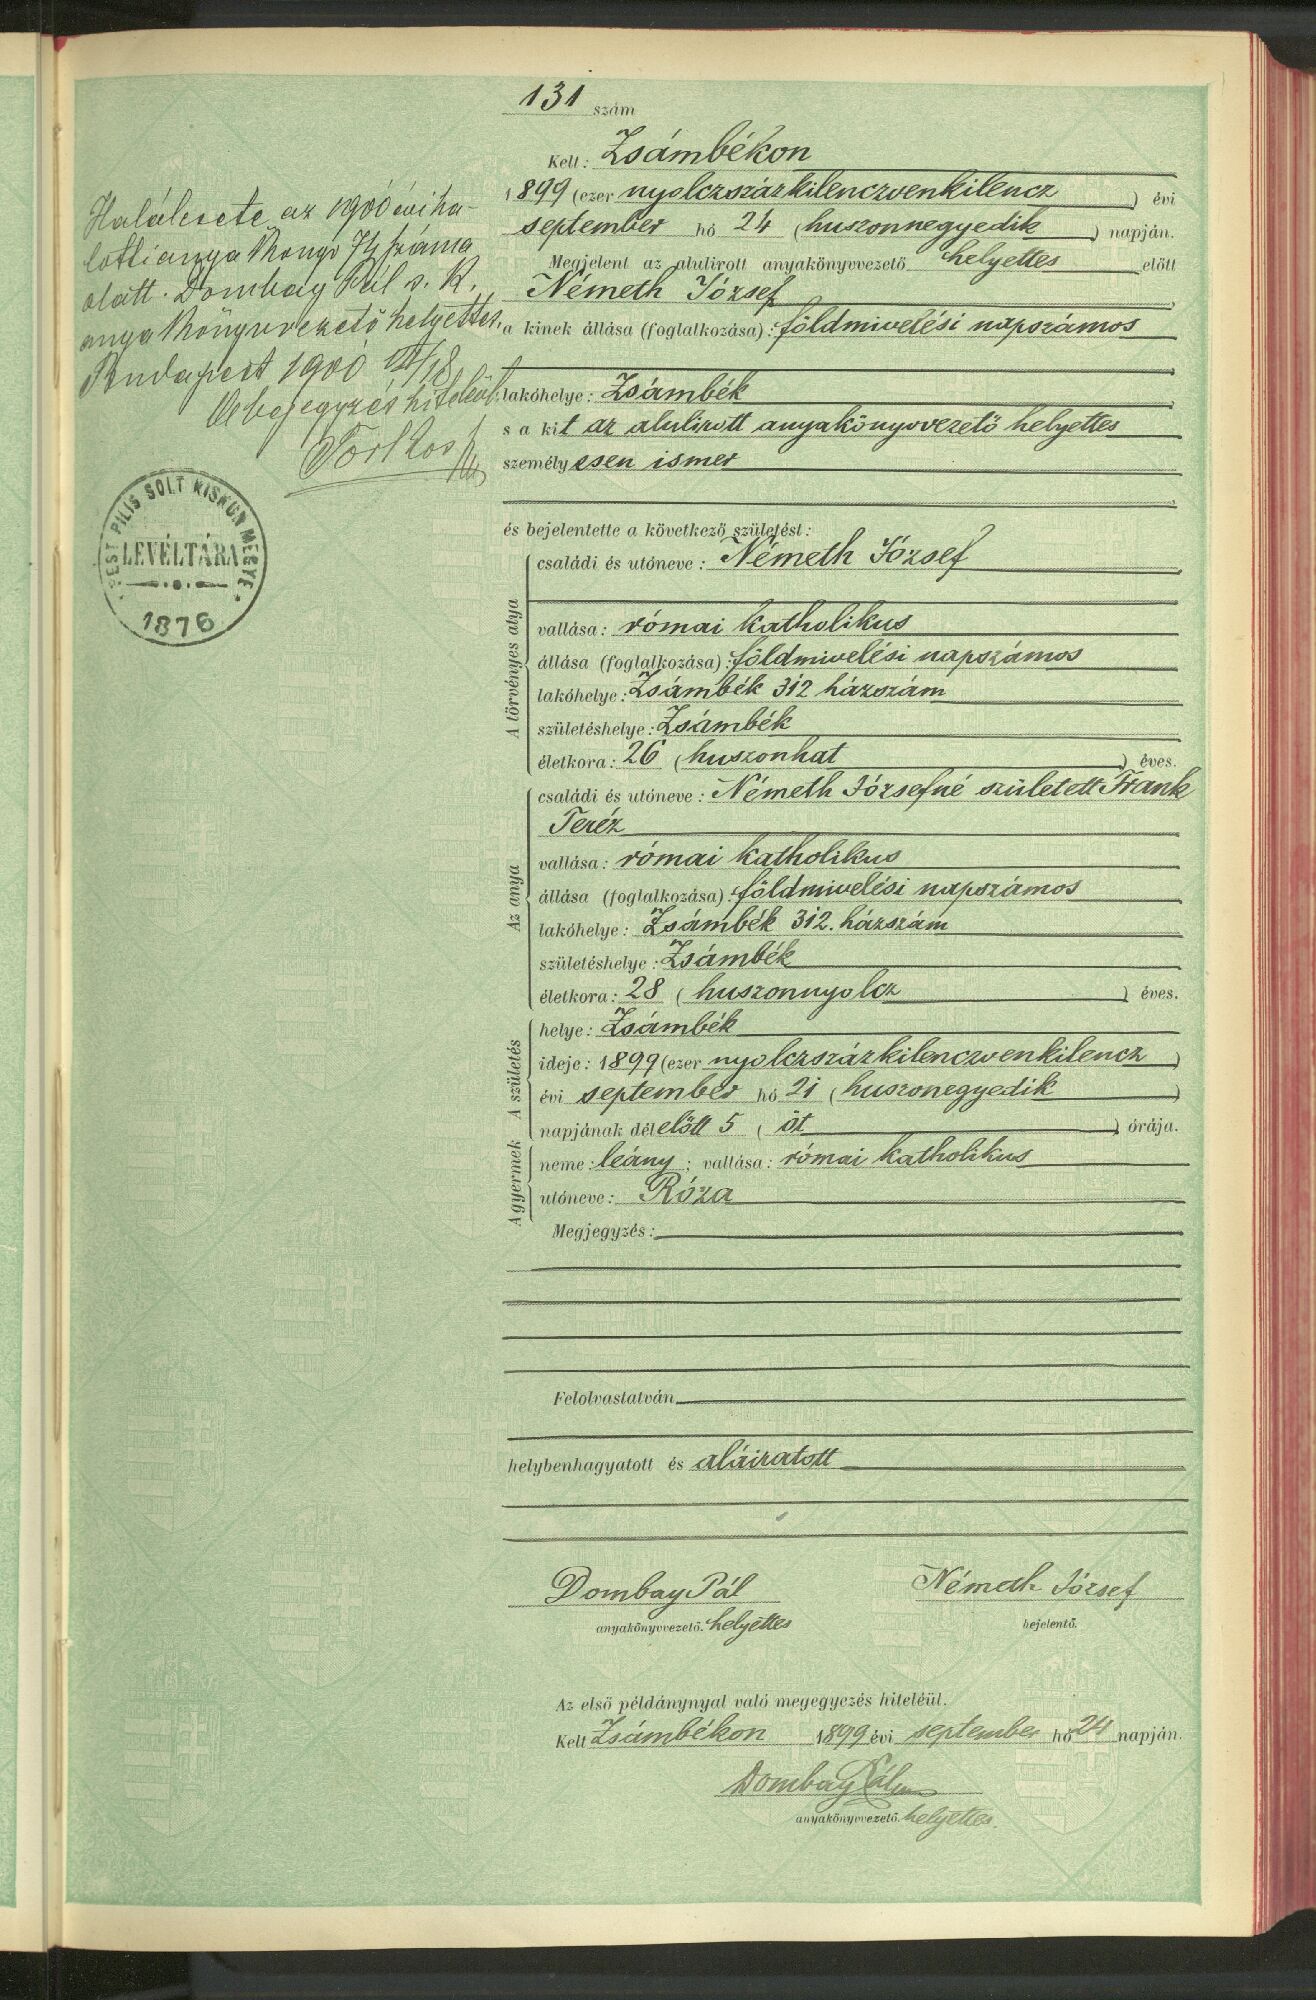 131 szám
Kelt: Zsámbékon
1899 (ezer nyolczszázkilenczvenkilencz) évi
september hó 24 (huszonnegyedik) napján.
Megjelent az alulirott anyakönyvvezető helyettes előtt
Németh József
a kinek állása (foglalkozása): földmivelési napszámos
lakóhelye: Zsámbék
s a kit az alulirott anyakönyvvezető helyettes
személyesen ismer
és bejelentette a következő születést:
A törvényes atya
családi és utóneve: Németh József
vallása: római katholikus
állása (foglalkozása): földmivelési napszámos
lakóhelye: Zsámbék 312 házszám
születéshelye: Zsámbék
életkora: 26 (huszonhat) éves.
Az anya
családi és utóneve: Németh Józsefné született Frank
Teréz
vallása: római katholikus
állása (foglalkozása): földmivelési napszámos
lakóhelye: Zsámbék 312. házszám
születéshelye: Zsámbék
életkora: 28 (huszonnyolcz) éves.
A születés
helye: Zsámbék
ideje: 1899 (ezer nyolczszázkilenczvenkilencz)
évi september hó 21 (huszonegyedik)
napjának délelőtt 5 (öt) órája.
A gyermek
neme: leány; vallása: római katholikus
utóneve: Róza
Megjegyzés:
Felolvastatván
helybenhagyatott és aláiratott
Dombay Pál
anyakönyvvezető. helyettes
Németh József
bejelentő.
Az első példánynyal való megegyezés hiteléül.
Kelt Zsámbékon 1899 évi september hó 24 napján.
Dombay Pál
anyakönyvvezető. helyettes.
Halálesete az 1900 évi ha-
lotti anyakönyv száma
alatt. Dombay Pál s. k.
anyakönyvvezető helyettes.
Budapest 1900
A bejegyzés hiteléül:
PEST PILIS SOLT KISKUN MEGYE
LEVÉLTÁRA
1876